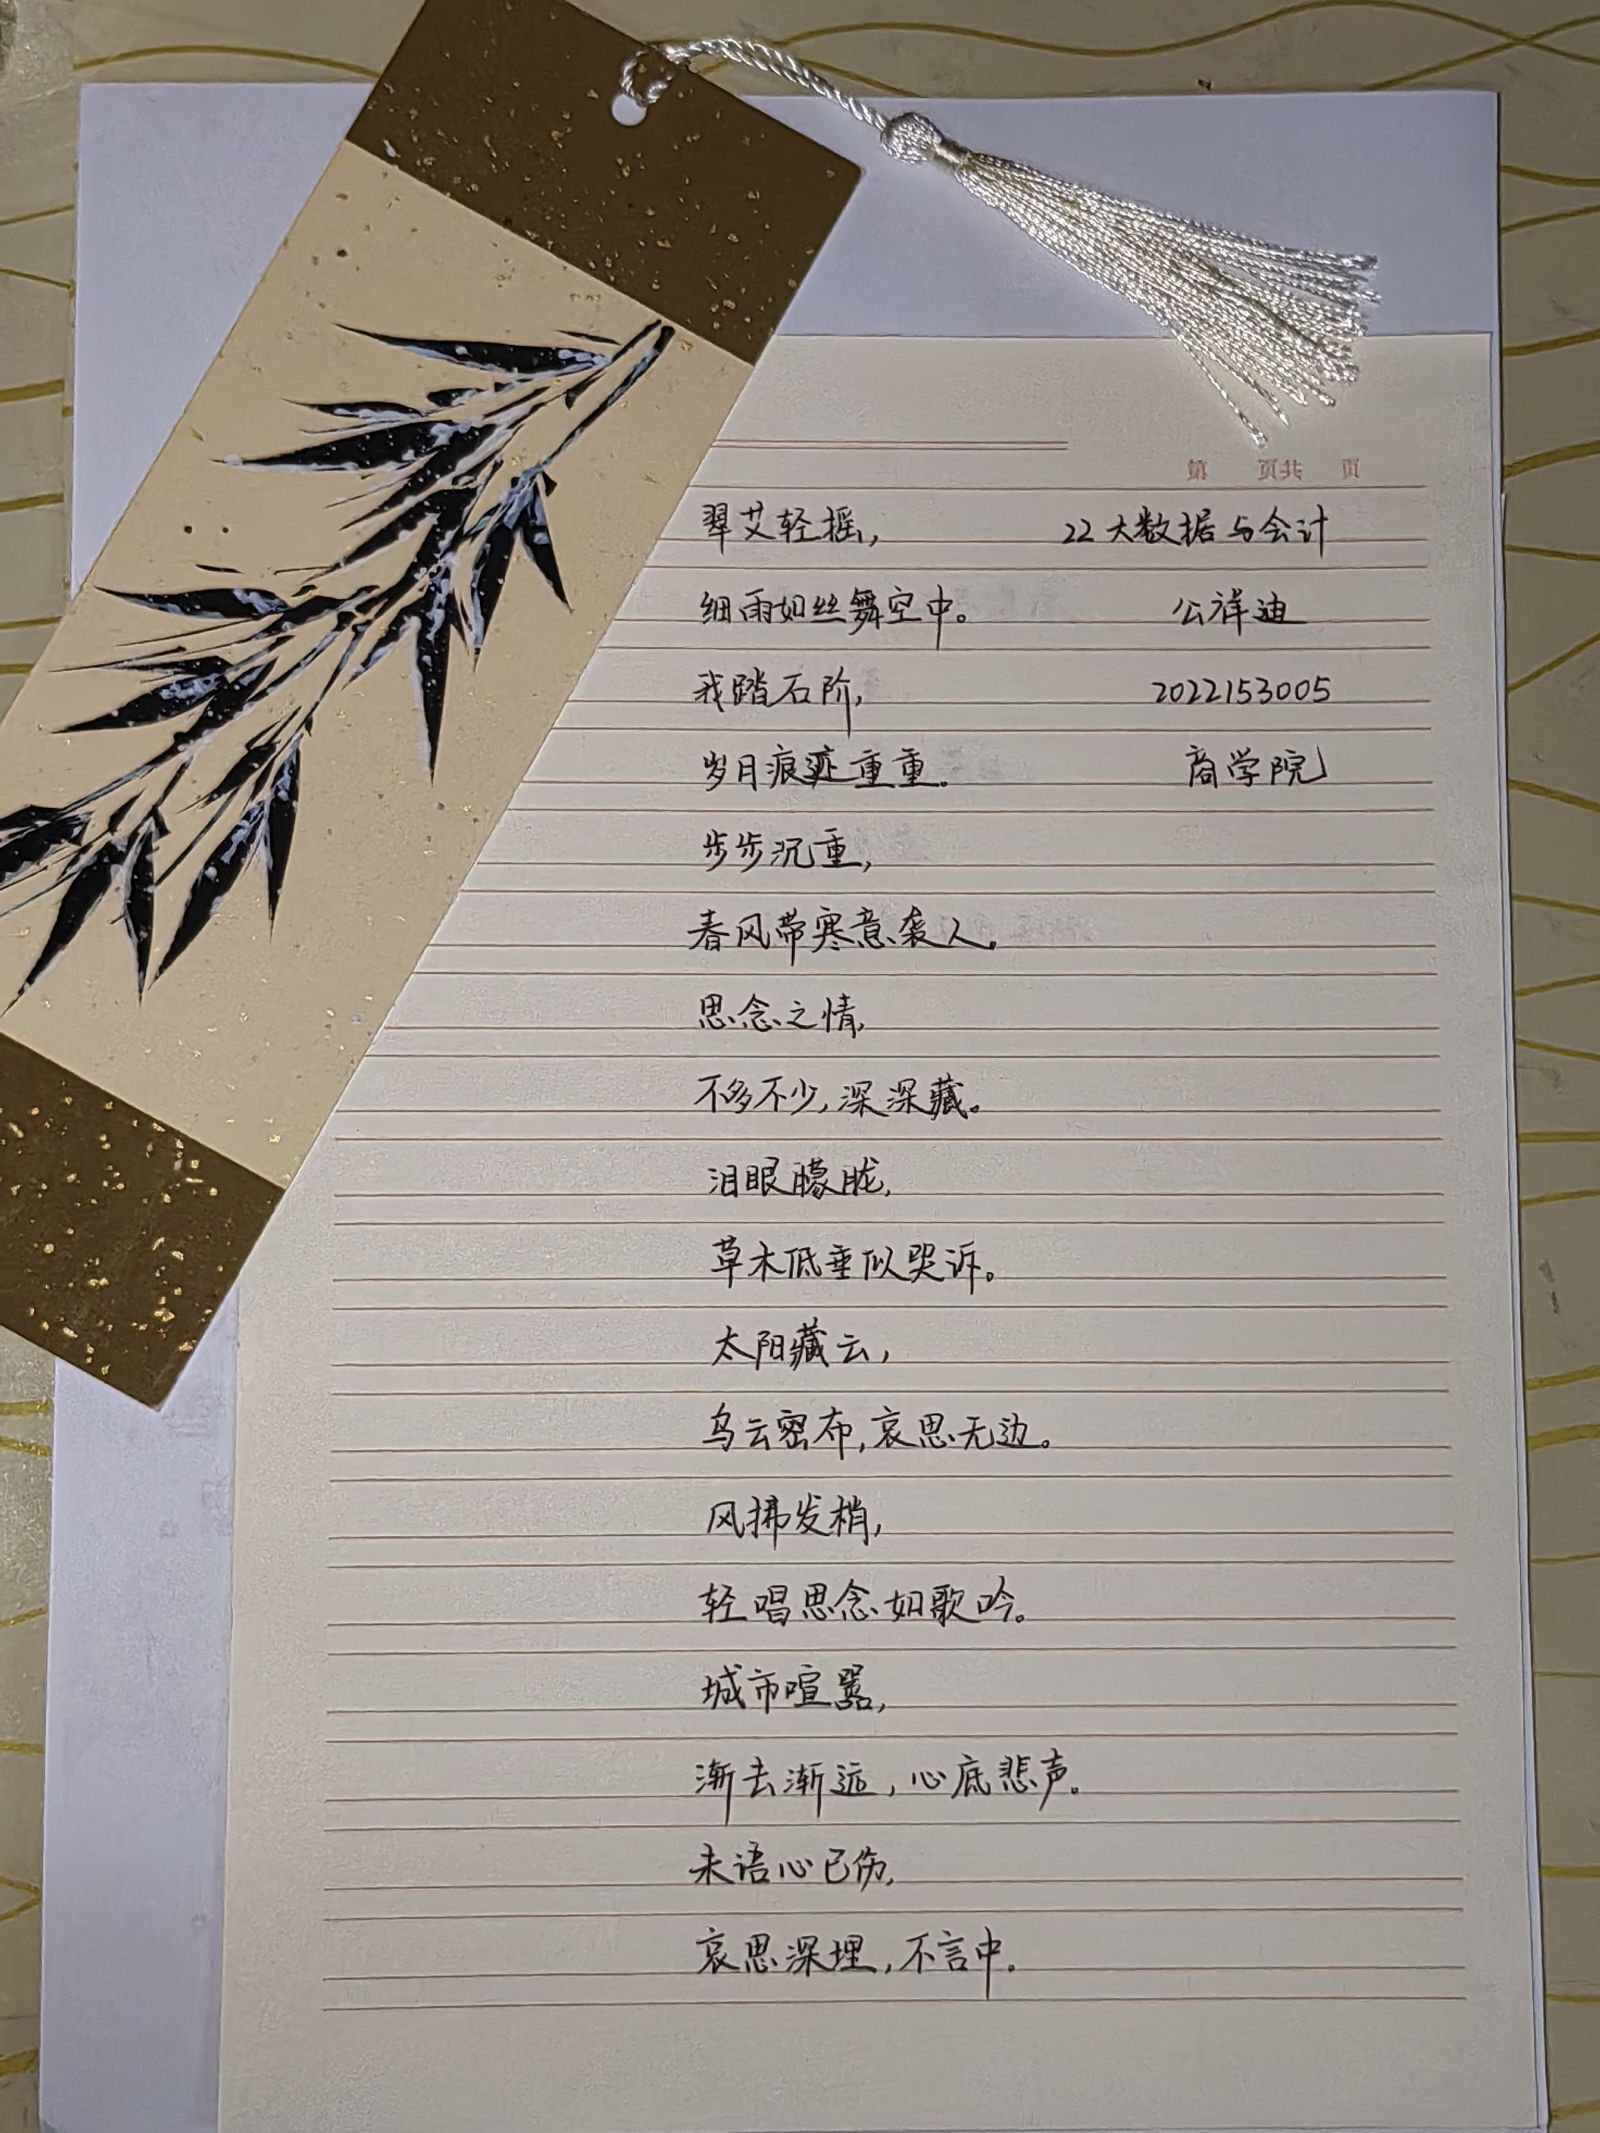 第 页共 页
翠艾轻摇, 22大数据与会计
细雨如丝舞空中。 公祥迪
我踏石阶, 2022153005
岁月痕迹重重。 商学院
步步沉重,
春风带寒意袭人。
思念之情,
不多不少,深深藏。
泪眼朦胧,
草木低垂似哭诉。
太阳藏云,
乌云密布,哀思无边。
风拂发梢,
轻唱思念如歌吟。
城市喧嚣,
渐去渐远,心底悲声。
未语心已伤,
哀思深埋,不言中。